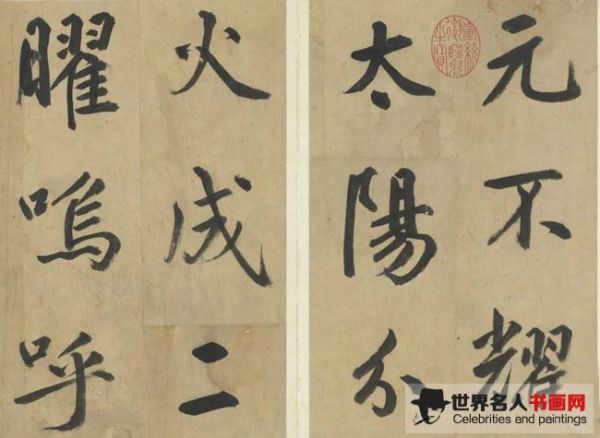 元不耀
太陽分
火成二
曜嗚呼
宣統御覽之寶
世界名人书画网
Celebrities and paintings